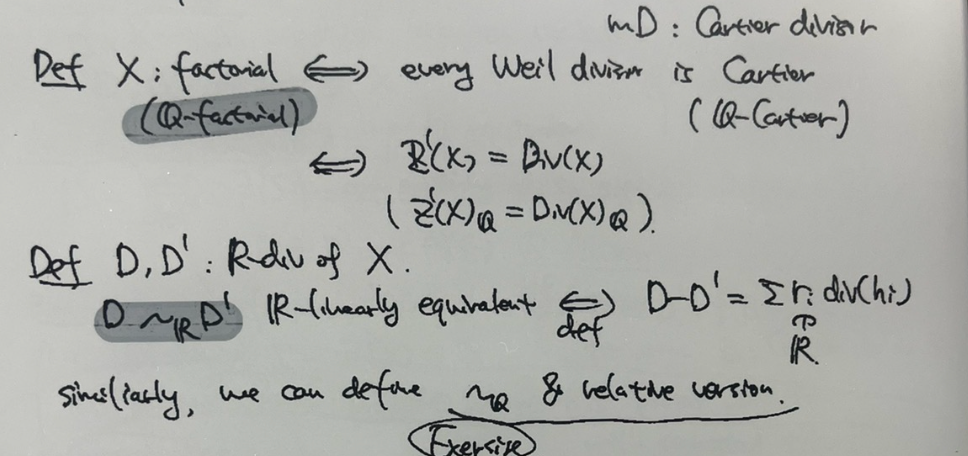 mD : Cartier divisor
Def X : factorial ⟺ every Weil divisor is Cartier
(Q-factorial) (Q-Cartier)
⟺ Z¹(X) = Div(X)
( Z¹(X)_Q = Div(X)_Q ).
Def D, D' : R-div of X.
D ~_R D' R-linearly equivalent ⟺ D-D' = Σ rᵢ div(hᵢ)
def ↑
R.
similiarly, we can define ~_Q & relative version.
Exersise